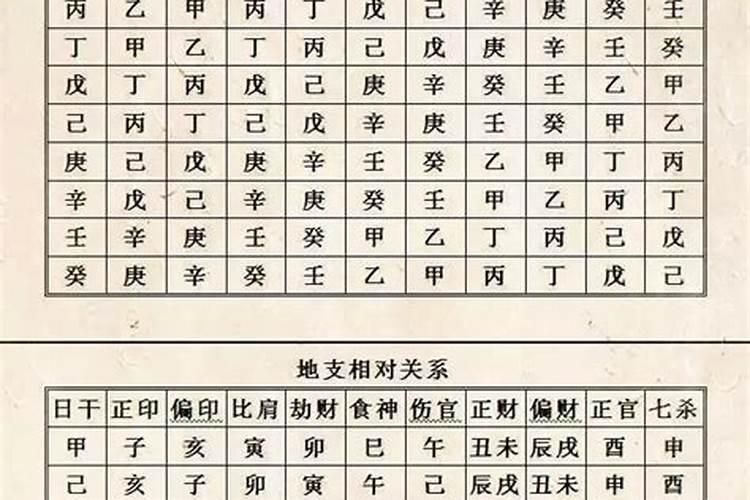 丙 乙 甲 丙 丁 戊 己 辛 庚 癸 壬
丁 甲 乙 丁 丙 己 戊 庚 辛 壬 癸
戊 丁 丙 戊 己 庚 辛 癸 壬 乙 甲
己 丙 丁 己 戊 辛 庚 壬 癸 甲 乙
庚 己 戊 庚 辛 壬 癸 乙 甲 丁 丙
辛 戊 己 辛 庚 癸 壬 甲 乙 丙 丁
壬 辛 庚 壬 癸 甲 乙 丁 丙 己 戊
癸 庚 辛 癸 壬 乙 甲 丙 丁 戊 己
地支相对关系
日干 正印 偏印 比肩 劫财 食神 伤官 正财 偏财 正官 七杀
甲 子 亥 寅 卯 巳 午 丑未 辰戌 酉 申
己 亥 子 卯 寅 午 己 辰戌 丑未 申 酉